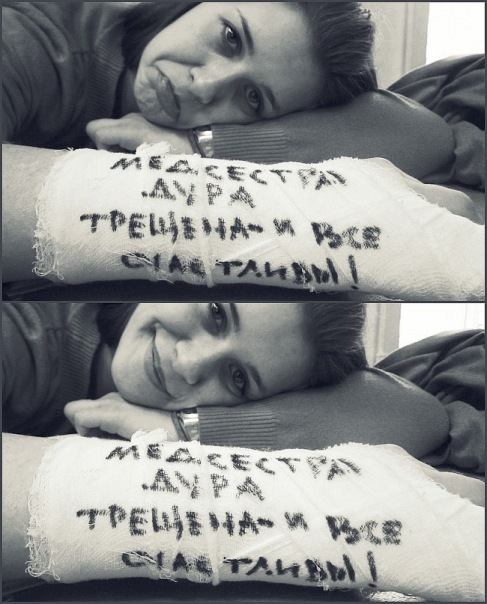 МЕДСЕСТРА
ДУРА
ТРЕЩЕНА- И ВСЕ
СЧАСТЛИВЫ!
МЕДСЕСТРА
ДУРА
ТРЕЩЕНА- И ВСЕ
СЧАСТЛИВЫ!